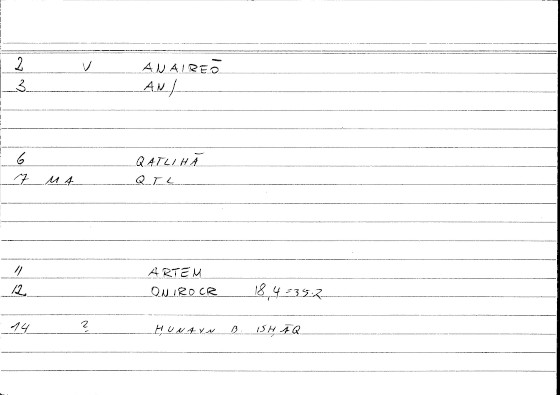 2 V ANAIREŌ
3 AN/
6 QATLIHĀ
7 MA QTL
11 ARTEM
12 ONIROCR 18,4 = 35.2
14 ? ḤUNAYN B. ISḤĀQ